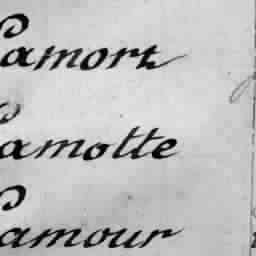 Lamort
Lamotte
Lamour